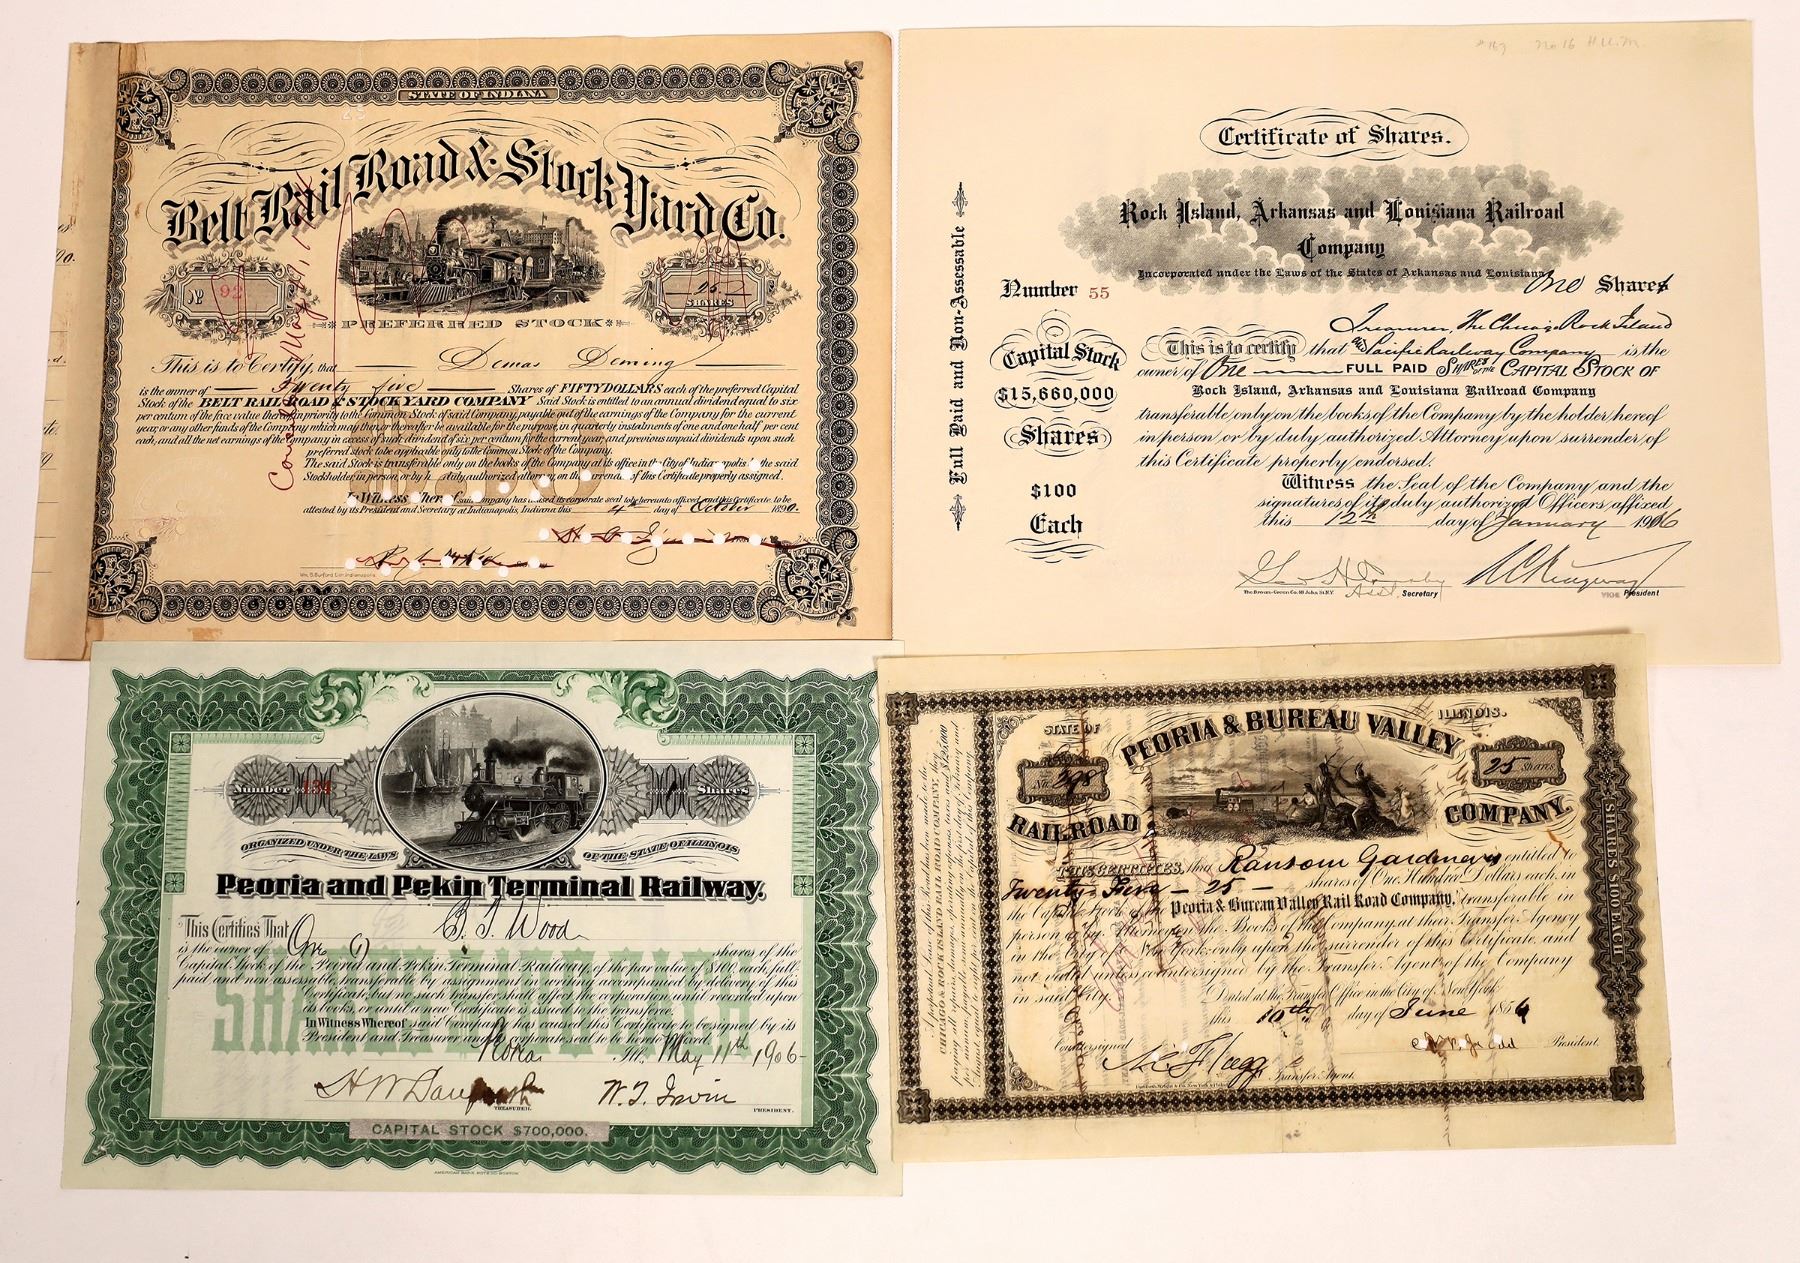 STATE OF INDIANA
Belt Rail Road & Stock Yard Co.
No 92
25
SHARES
PREFERRED STOCK
This is to Certify, that Demas Deming
is the owner of Twenty five Shares of FIFTY DOLLARS each of the preferred Capital
Stock of the BELT RAIL ROAD & STOCK YARD COMPANY Said Stock is entitled to an annual dividend equal to six
per centum of the face value thereof in priority to the Common Stock of said Company, payable out of the earnings of the Company for the current
year, or any other funds of the Company which may then, or thereafter be available for the purpose, in quarterly instalments of one and one half per cent
each, and all the net earnings of the company in excess of such dividend of six per centum for the current year, and previous unpaid dividends upon such
preferred stock to be applicable only to the Common Stock of the Company.
The said Stock is transferable only on the books of the Company at its office in the City of Indianapolis by the said
Stockholder, in person, or by h duly authorized attorney, on the surrender of this Certificate properly assigned.
In Witness Whereof said Company has caused its corporate seal to be hereunto affixed and this Certificate to be
attested by its President and Secretary at Indianapolis, Indiana this 4th day of October 1890.
Wm. B. Burford Lith. Indianapolis
#167 No 16
Certificate of Shares.
Rock Island, Arkansas and Louisiana Railroad
Company
Incorporated under the Laws of the States of Arkansas and Louisiana
Full Paid and Non-Assessable
Number 55
One Shares
Capital Stock
$15,660,000
Shares
$100
Each
Treasurer, The Chicago Rock Island
This is to certify that and Pacific Railway Company is the
owner of One FULL PAID SHARES of the CAPITAL STOCK OF
Rock Island, Arkansas and Louisiana Railroad Company
transferable only on the books of the Company by the holder hereof
in person or by duly authorized Attorney upon surrender of
this Certificate properly endorsed.
Witness the Seal of the Company and the
signatures of its duly authorized Officers, affixed
this 12th day of January 1906
Asst. Secretary
VICE President
The Brown-Green Co. 48 John St. N.Y.
Number 134
1 Shares
ORGANIZED UNDER THE LAWS OF THE STATE OF ILLINOIS
Peoria and Pekin Terminal Railway.
This Certifies That B. F. Wood
is the owner of One (1) shares of the
Capital Stock of the Peoria and Pekin Terminal Railway, of the par value of $100. each, full
paid and non assessable, transferable by assignment in writing accompanied by delivery of this
Certificate, but no such transfer shall affect the corporation until recorded upon
its books, or until a new Certificate is issued to the transferee.
In Witness Whereof said Company has caused this Certificate to be signed by its
President and Treasurer and its corporate seal to be hereto affixed.
Ill. May 11th 1906
TREASURER.
W. T. Irwin
PRESIDENT.
CAPITAL STOCK $700,000.
AMERICAN BANK NOTE CO. BOSTON
STATE OF ILLINOIS.
PEORIA & BUREAU VALLEY
RAILROAD COMPANY.
No. 398
25 Shares
SHARES $100 EACH
CHICAGO & ROCK ISLAND RAIL ROAD COMPANY
THIS CERTIFIES, that Ransom Gardner is entitled to
Twenty Five - 25 - shares of One Hundred Dollars each, in
the Capital Stock of the Peoria & Bureau Valley Rail Road Company, transferable in
person or by Attorney on the Books of the Company, at their Transfer Agency
in the City of New York, only upon the surrender of this Certificate, and
not valid unless countersigned by the Transfer Agent of the Company
in said City.
Dated at the Transfer Office in the City of New York
this 10th day of June 1856
Countersigned
Transfer Agent.
N. B. Judd President.